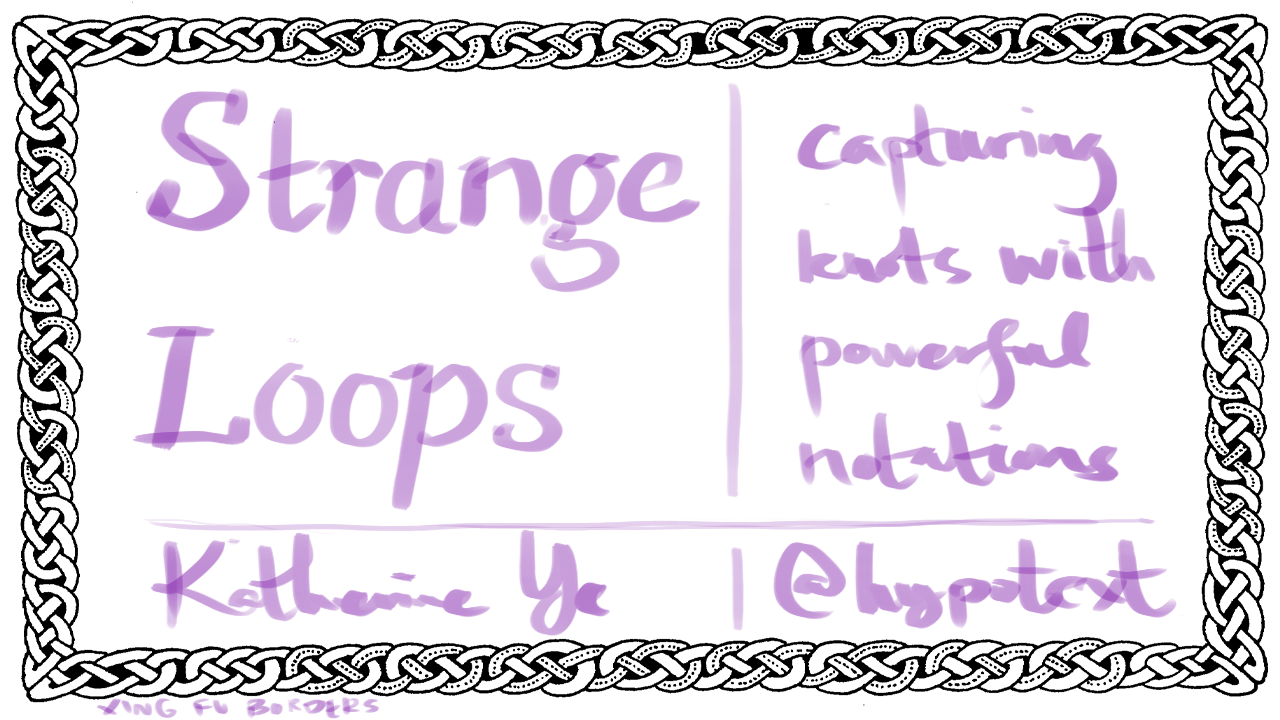 Strange
Loops
capturing
knots with
powerful
notations
Katherine Ye
@hypotext
XING FU BORDERS